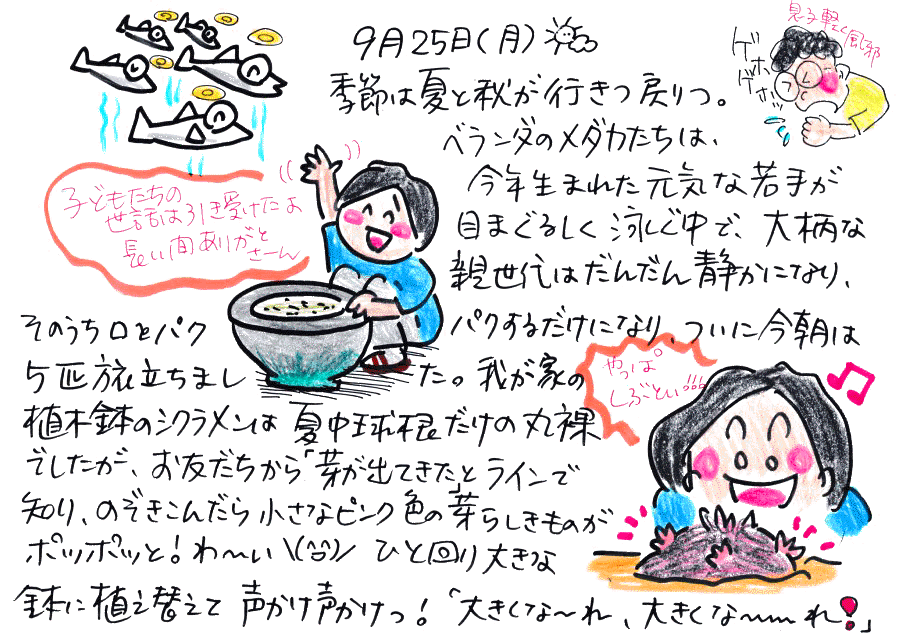 9月25日(月)
息子軽く風邪
ゲホ
ゲホッ
季節は夏と秋が行きつ戻りつ。
ベランダのメダカたちは、
今年生まれた元気な若手が
目まぐるしく泳ぐ中で、大柄な
親世代はだんだん静かになり、
子どもたちの
世話は引き受けたよ
長い間ありがと
さーん
そのうち口をパクパクするだけになり、ついに今朝は
5匹旅立ちました。我が家の
やっぱ
しぶとい!!!
植木鉢のシクラメンは夏中球根だけの丸裸
でしたが、お友だちから「芽が出てきた」とラインで
知り、のぞきこんだら小さなピンク色の芽らしきものが
ポツポツと!わ〜い\(^^)/ ひと回り大きな
鉢に植え替えて声かけ声かけっ!「大きくな〜れ、大きくな〜れ!」